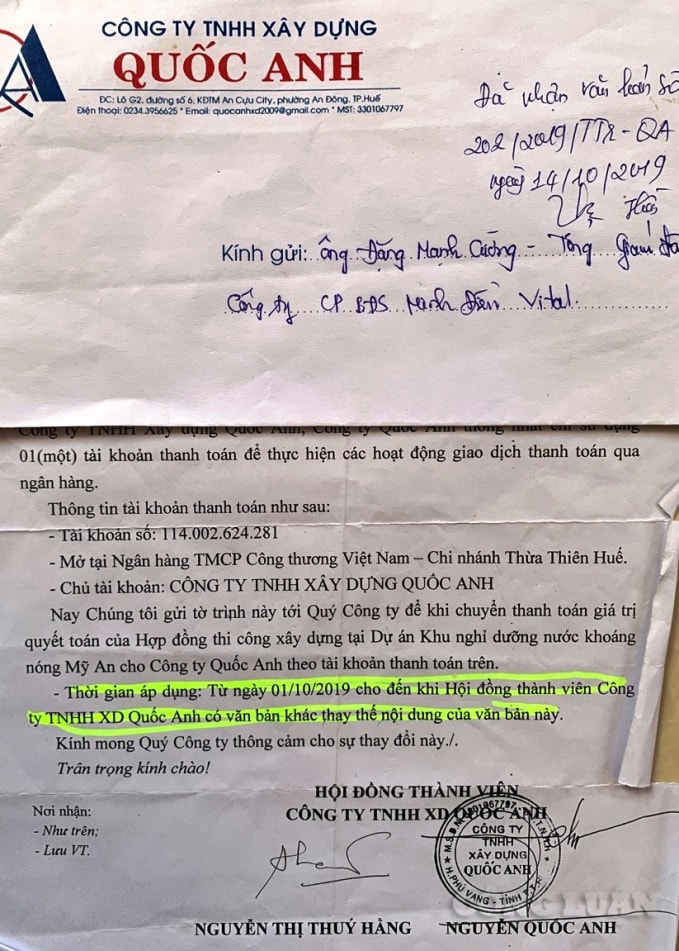 CÔNG TY TNHH XÂY DỰNG
QUỐC ANH
ĐC: Lô G2, đường số 6, KĐTM An Cựu City, phường An Đông, TP.Huế
Điện thoại: 0234.3956625 * Email: quocanhxd2009@gmail.com * MST: 3301067797
Đã nhận văn bản số
202/2019/TTr-QA
ngày 14/10/2019
Kính gửi: Ông Đặng Mạnh Cường - Tổng Giám
Công ty CP BĐS Minh Điền Vital
Công ty TNHH Xây dựng Quốc Anh, Công ty Quốc Anh thống nhất chỉ sử dụng
01(một) tài khoản thanh toán để thực hiện các hoạt động giao dịch thanh toán qua
ngân hàng.
Thông tin tài khoản thanh toán như sau:
- Tài khoản số: 114.002.624.281
- Mở tại Ngân hàng TMCP Công thương Việt Nam – Chi nhánh Thừa Thiên Huế.
- Chủ tài khoản: CÔNG TY TNHH XÂY DỰNG QUỐC ANH
Nay Chúng tôi gửi tờ trình này tới Quý Công ty để khi chuyển thanh toán giá trị
quyết toán của Hợp đồng thi công xây dựng tại Dự án Khu nghỉ dưỡng nước khoáng
nóng Mỹ An cho Công ty Quốc Anh theo tài khoản thanh toán trên.
- Thời gian áp dụng: Từ ngày 01/10/2019 cho đến khi Hội đồng thành viên Công
ty TNHH XD Quốc Anh có văn bản khác thay thế nội dung của văn bản này.
Kính mong Quý Công ty thông cảm cho sự thay đổi này./.
Trân trọng kính chào!
HỘI ĐỒNG THÀNH VIÊN
CÔNG TY TNHH XD QUỐC ANH
Nơi nhận:
- Như trên;
- Lưu VT.
CÔNG TY
TNHH
XÂY DỰNG
QUỐC ANH
H. PHÚ VANG - TỈNH
CÔNG LUẬN
NGUYỄN THỊ THUÝ HẰNG NGUYỄN QUỐC ANH